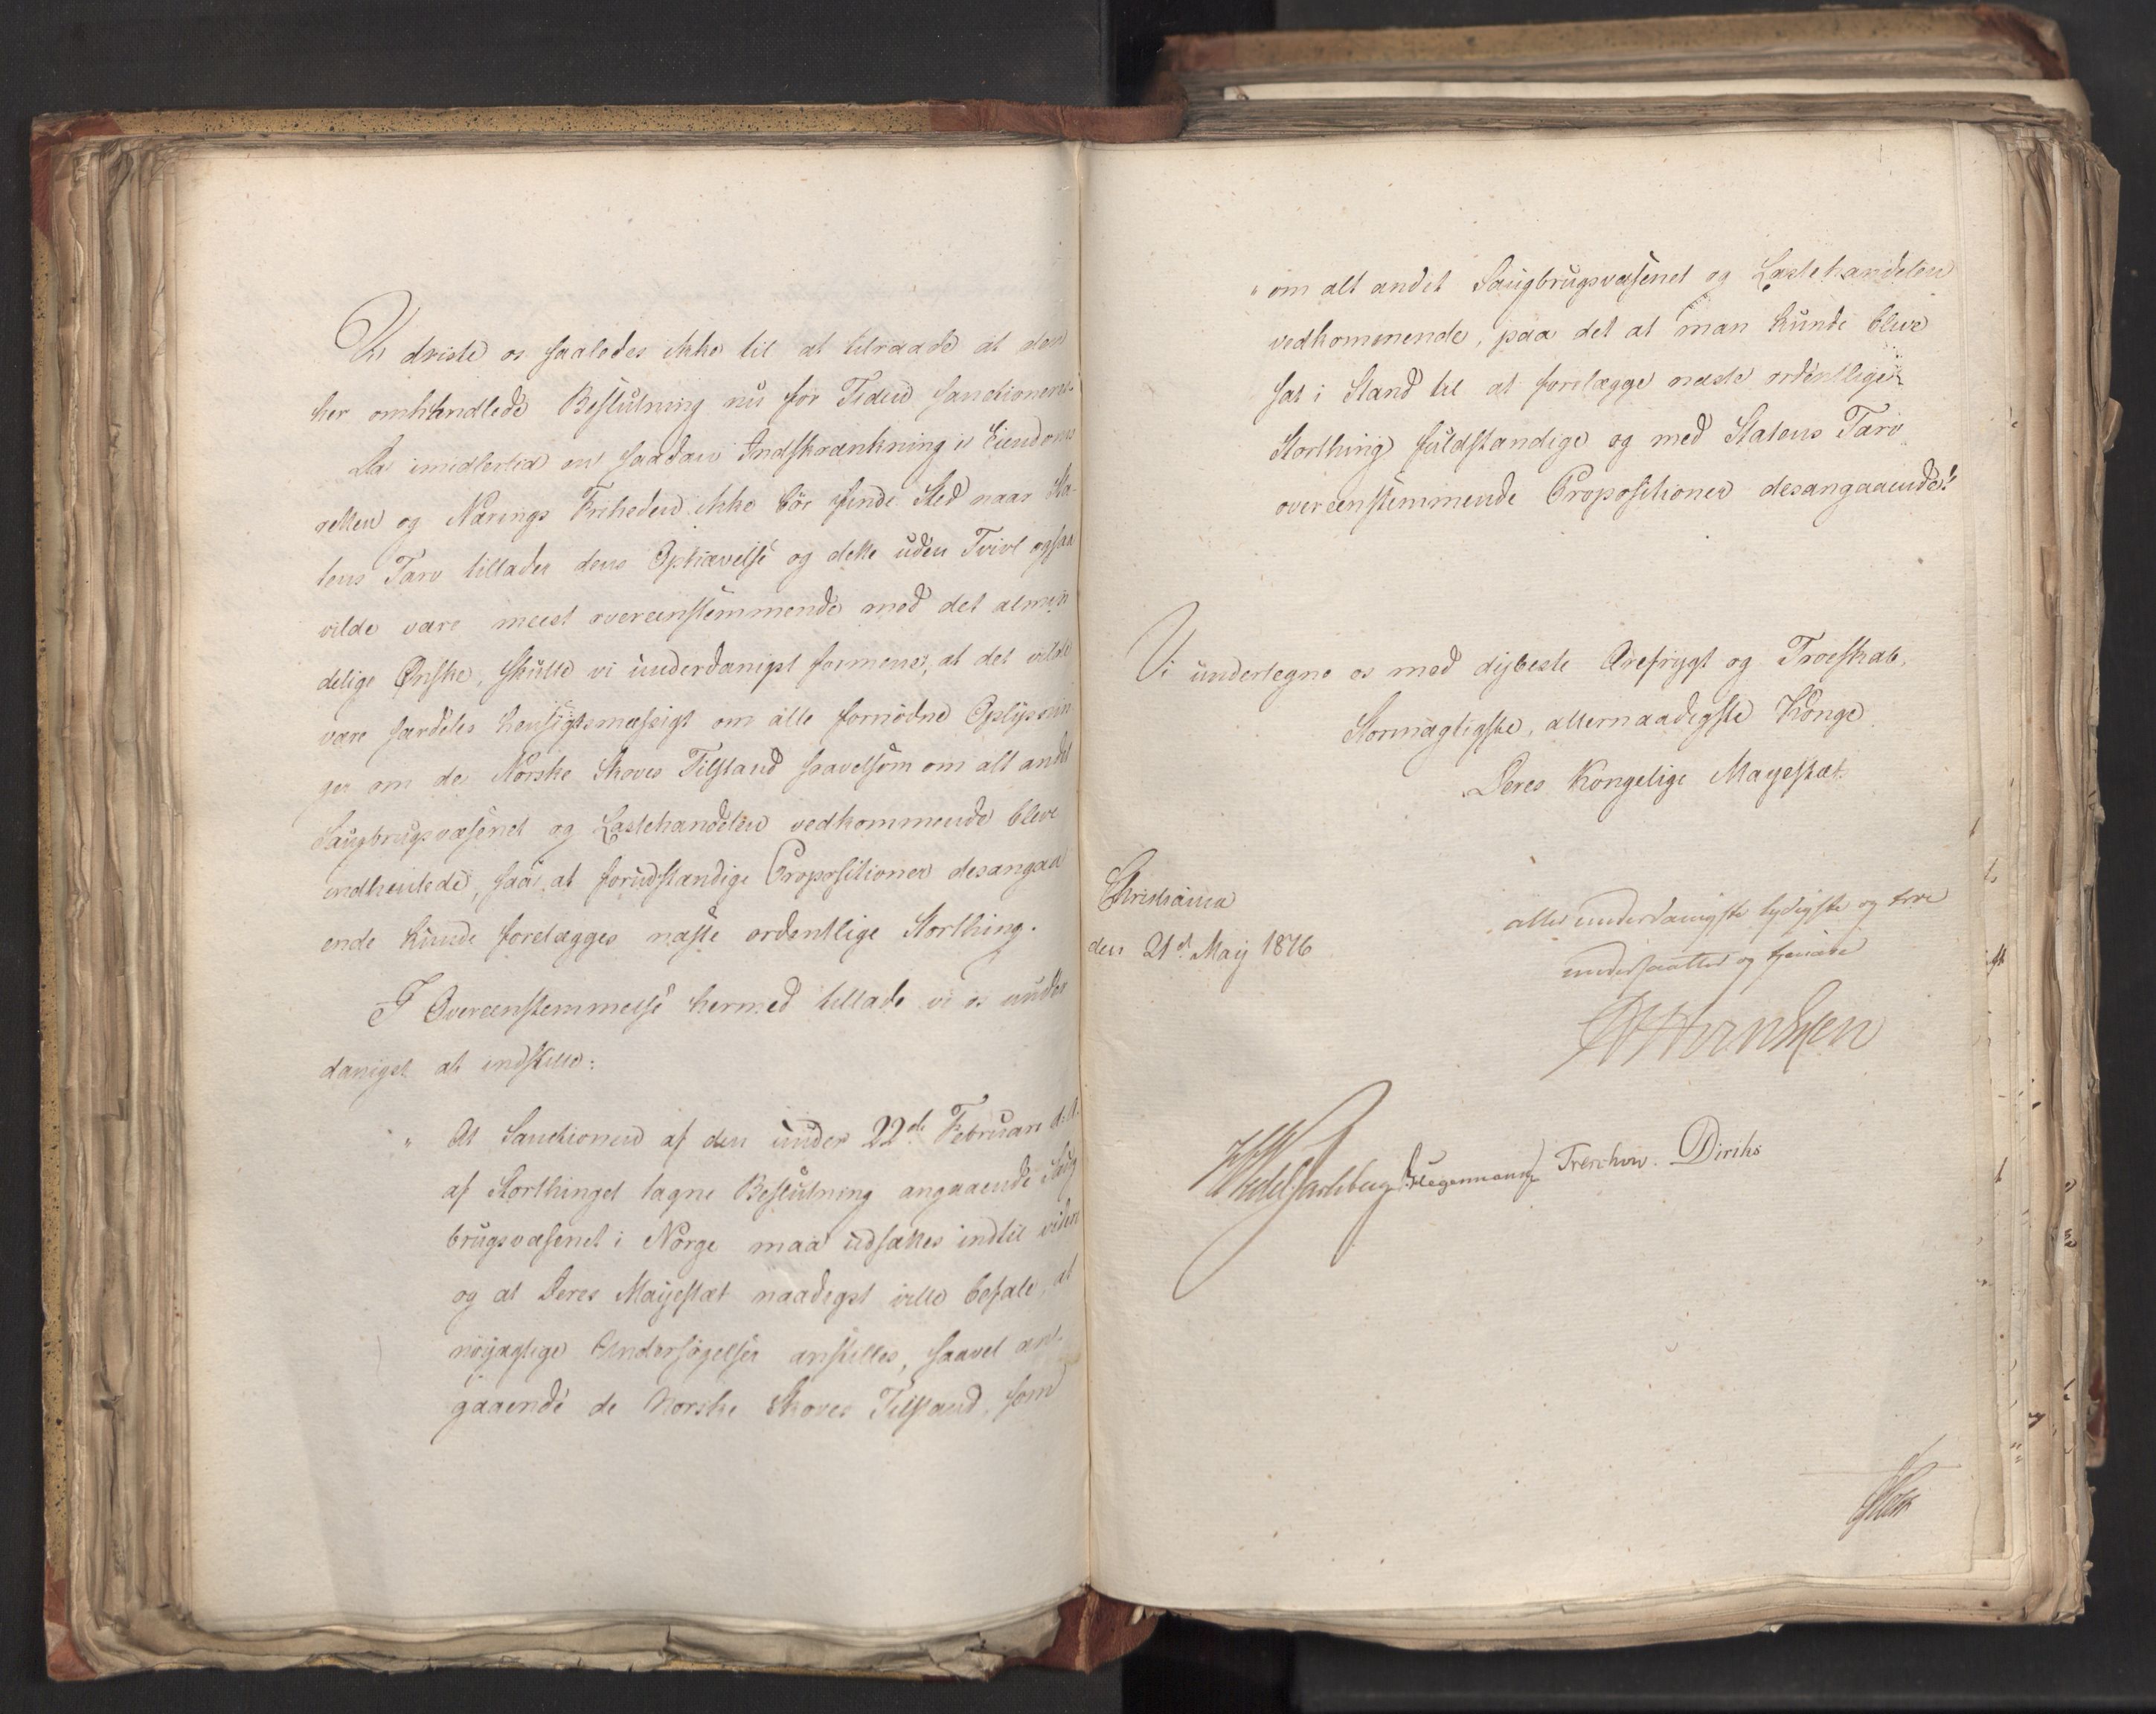 Vi driste os saaledes ikke til at tilraade at den
her omhandlede Beslutning nu for Tiden sanctioneres.
Da imidlertid en saadan Indskrænkning i Eiendoms
retten og Nærings Friheden ikke bör finde Sted naar Sta-
tens Tarv tillader dens Ophævelse og dette uden Tvivl ogsaa
vilde være meest overeenstemmende med det almin
delige Ønske, skulle vi underdanigst formene, at det vilde
være særdeles hensigtsmæssigt om alle fornödne Oplysnin
ger om de Norske Skoves Tilstand saavelsom om alt andet
Saugbrugsvæsenet og Lastehandelen vedkommende bleve
indhentede, saa at fuldstændige Propositioner desangaa
ende kunde forelægges næste ordentlige Storthing.
I Overeenstemmelse hermed tillade vi os under
danigst at indstille:
" At Sanctionen af den under 22de Februar d. A.
af Storthinget tagne Beslutning angaaende Saug
brugsvæsenet i Norge maa udsættes indtil videre
og at Deres Mayestæt naadigst ville befale, at
nöjagtige Undersögelser anstilles, saavel an-
gaaende de Norske Skoves Tilstand, som
" om alt andet Saugbrugsvæsenet og Lastehandelen
vedkommende, paa det at man kunde blive
sat i Stand til at forelægge næste ordentlige
Storthing fuldstændige og med Statens Tarv
overeenstemmende Propositioner desangaaende."
Vi undertegne os med dybeste Ærefrygt og Troeskab,
Stormægtigste, allernaadigste Konge
Deres Kongelige Mayestæt
Christiania
den 21de May 1816
allerunderdanigste lydigste og troe
undersaatter og tjenere
Wedel Jarlsberg Hegermann Treschow. Diriks